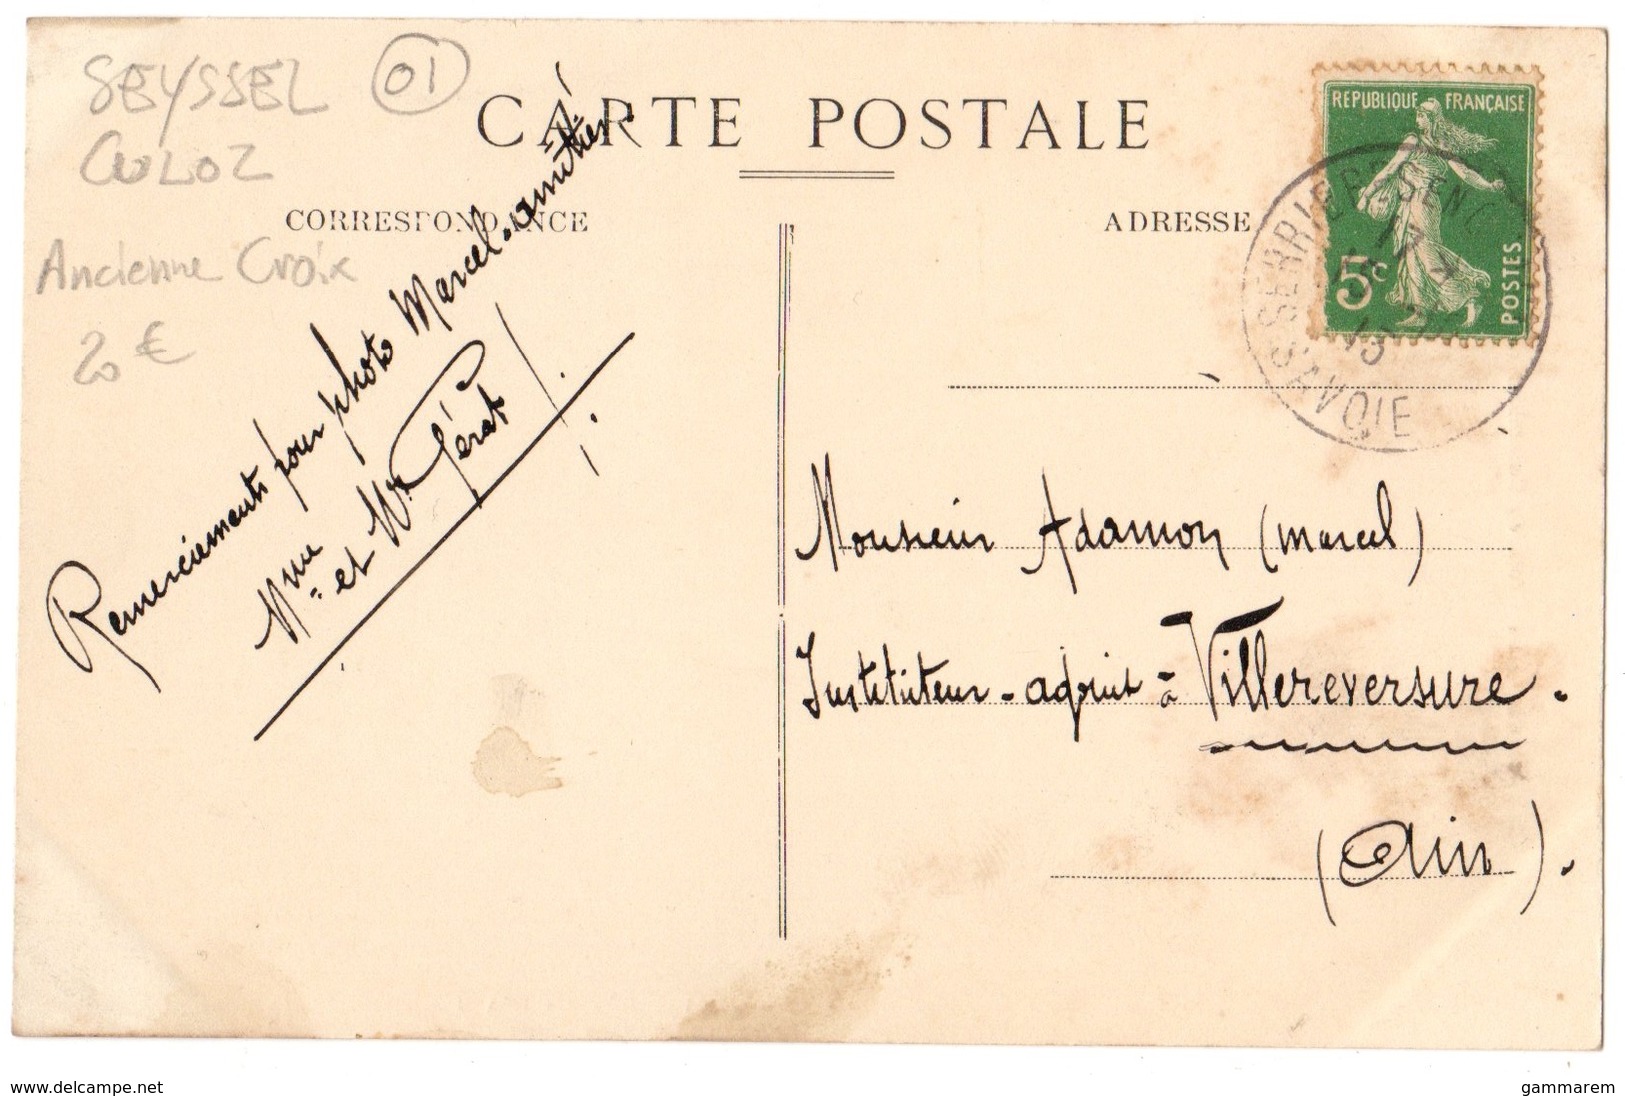 SEYSSEL 01
CULOZ
Ancienne Croix
20 €
CARTE POSTALE
CORRESPONDANCE
ADRESSE
REPUBLIQUE FRANÇAISE
5c
POSTES
SAVOIE
Remerciements pour photo Marcel. amitiés.
Mme et Mr
Monsieur Adamon (Marcel)
Instituteur-adjoint à Villereversure.
(Ain).
www.delcampe.net
gammarem